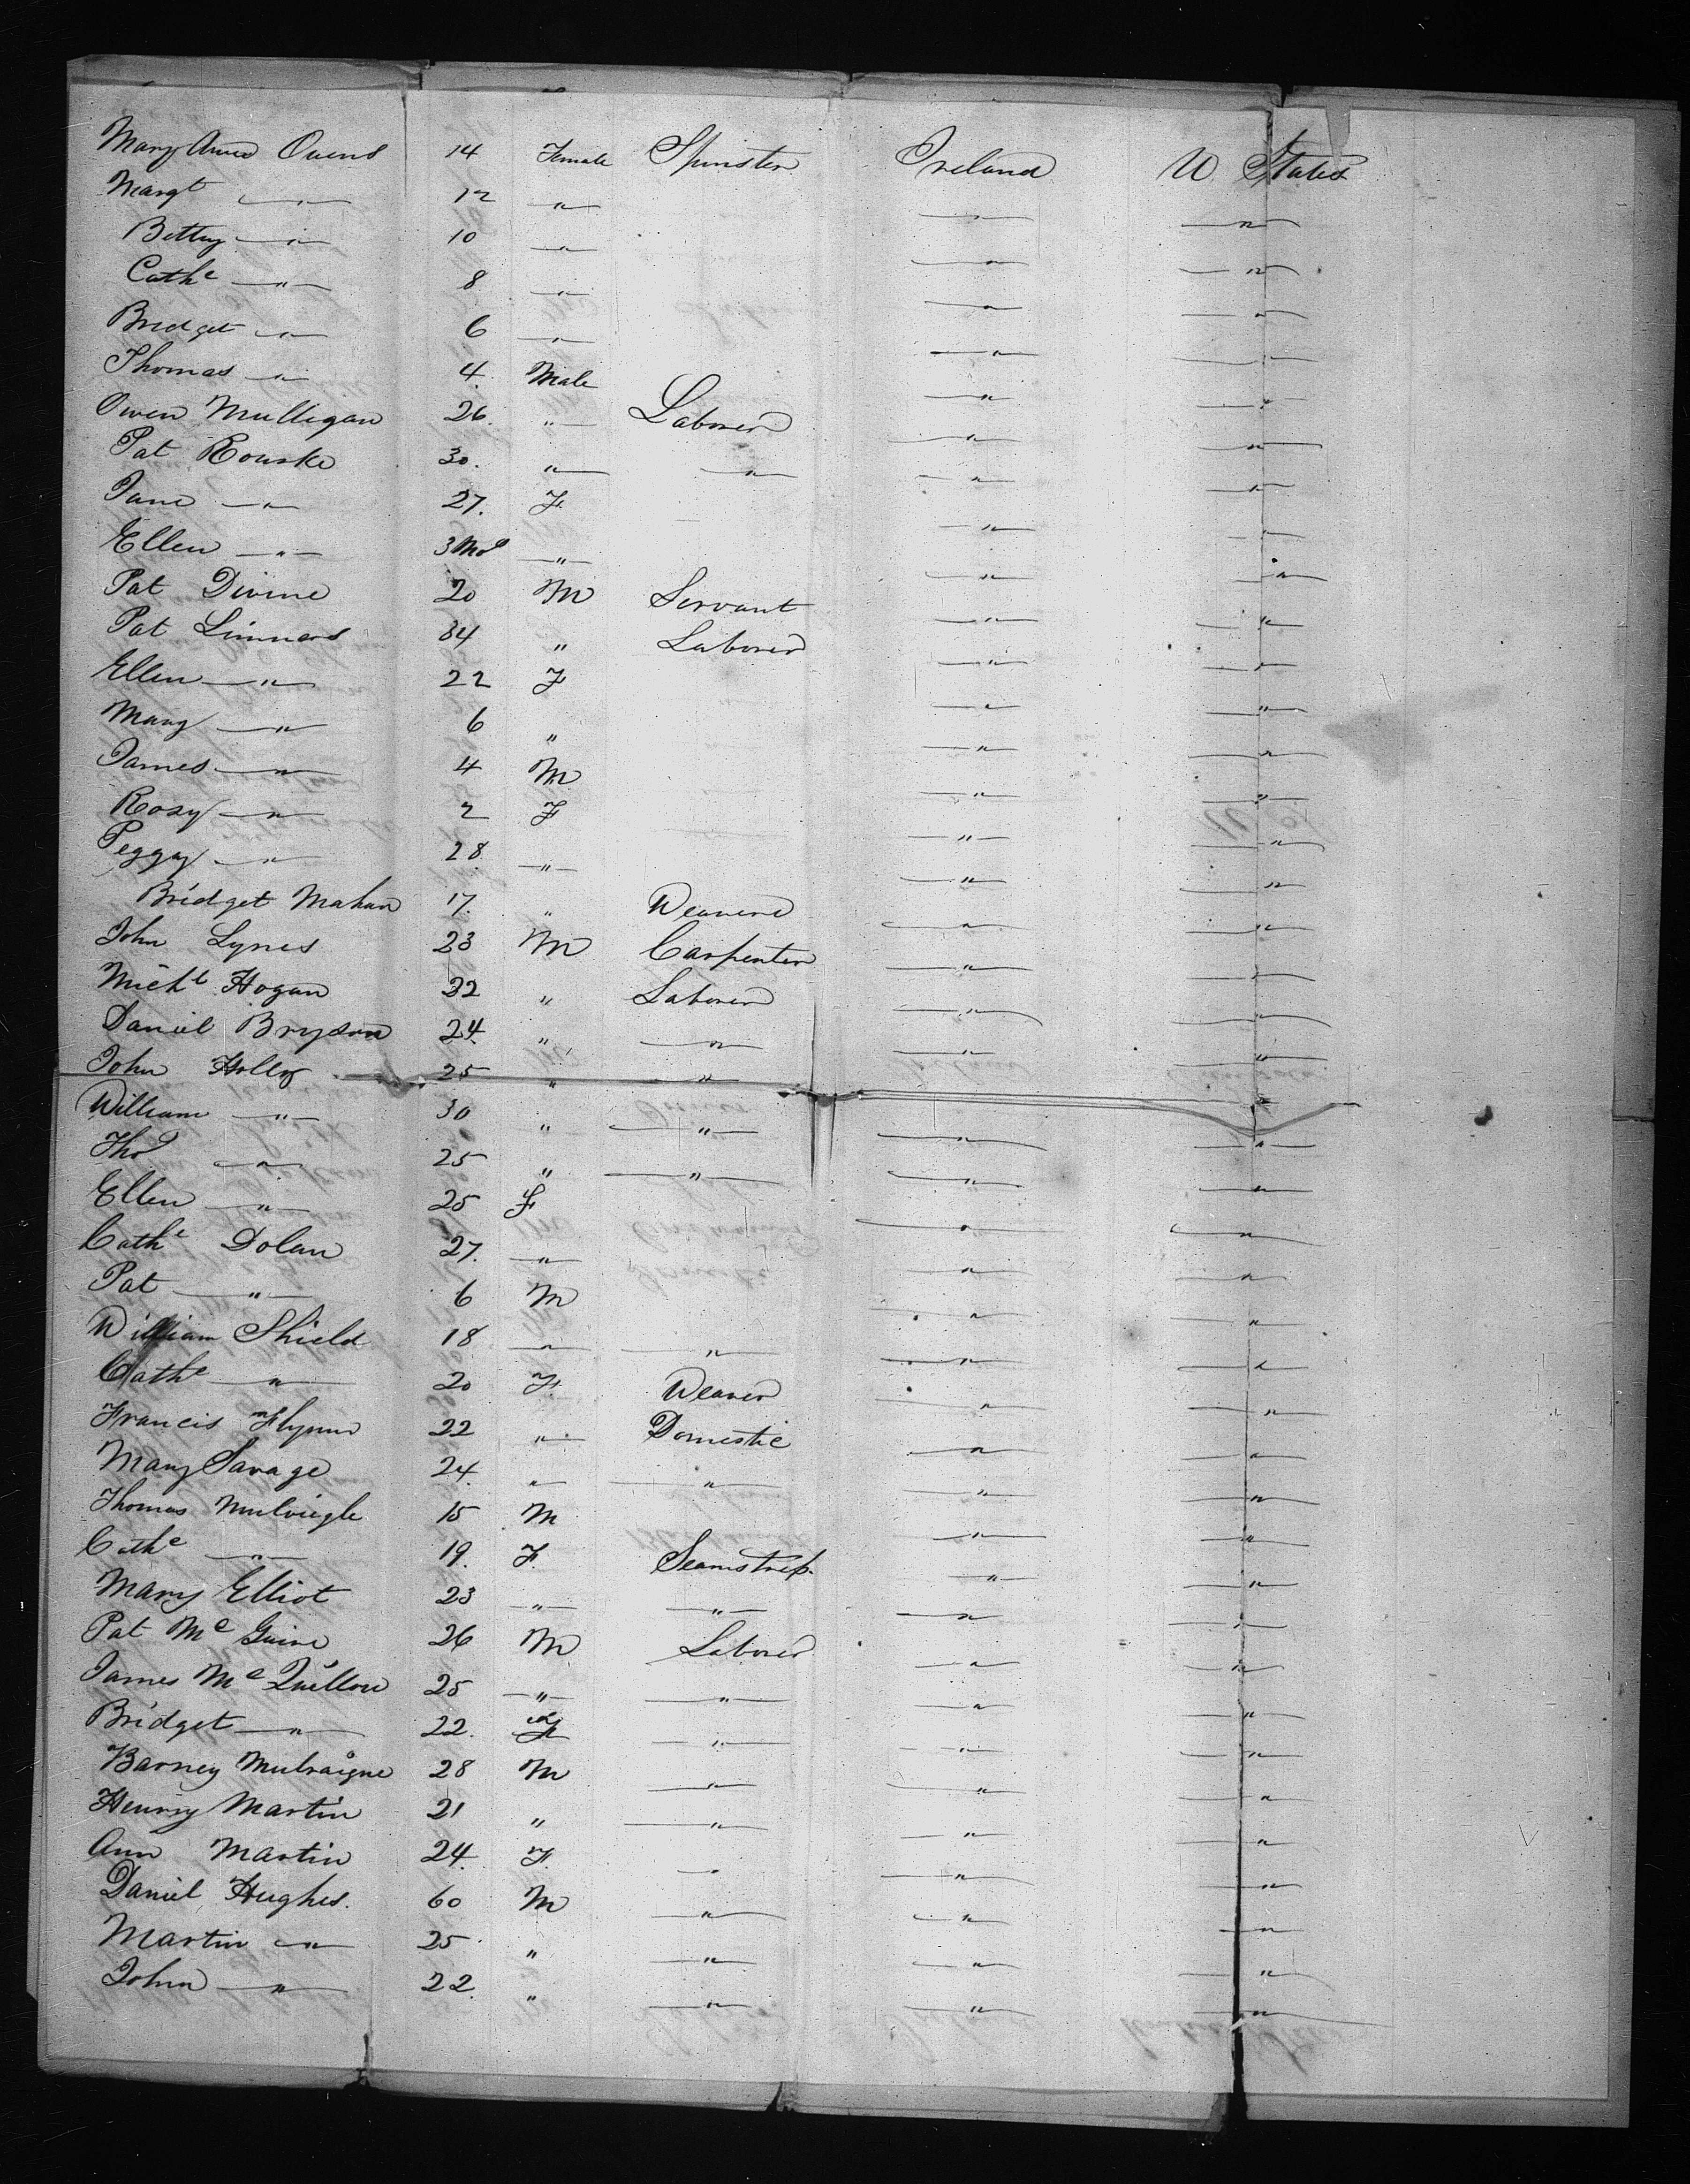 Mary Anne Owens 14 Female Spinster Ireland U. States
Margt " 12 " " "
Bettey " 10 " " "
Cathe " 8 " " "
Bridget " 6 " " "
Thomas " 4. Male " "
Owen Mulligan 26. " Laborer " "
Pat Rourke 30. " " " "
Jane " 27. F " "
Ellen " 3 Mos " " "
Pat Divine 20 M Servant " "
Pat 34 " Laborer " "
Ellen " 22 F " "
Mary " 6 " " "
James " 4 M " "
Rosy " 2 F " "
Peggy " 28 " " "
Bridget Mahan 17. " " "
John Lynes 23 M Carpenter " "
Michl Hogan 32 " Laborer " "
Daniel Bryson 24. " " " "
John 25 " " " "
William " 30 " " " "
Thos " 25 " " " "
Ellen " 25 F " "
Cathe Dolan 27. " " "
Pat " 6 M " "
William Shield 18 " " " "
Cathe " 20 F. Weaver " "
Francis Flynn 22 " Domestic " "
Mary Savage 24. " " " "
Thomas 15 M " "
Cathe " 19. F. Seamstress " "
Mary Elliot 23 " " " "
Pat Mc Guire 26 M Laborer " "
James Mc 25 " " " "
Bridget " 22. F " " "
Barney 28 M " " "
Henry Martin 21 " " " "
Ann Martin 24. F. " " "
Daniel Hughes. 60 M " " "
Martin " 25 " " " "
John " 22. " " " "